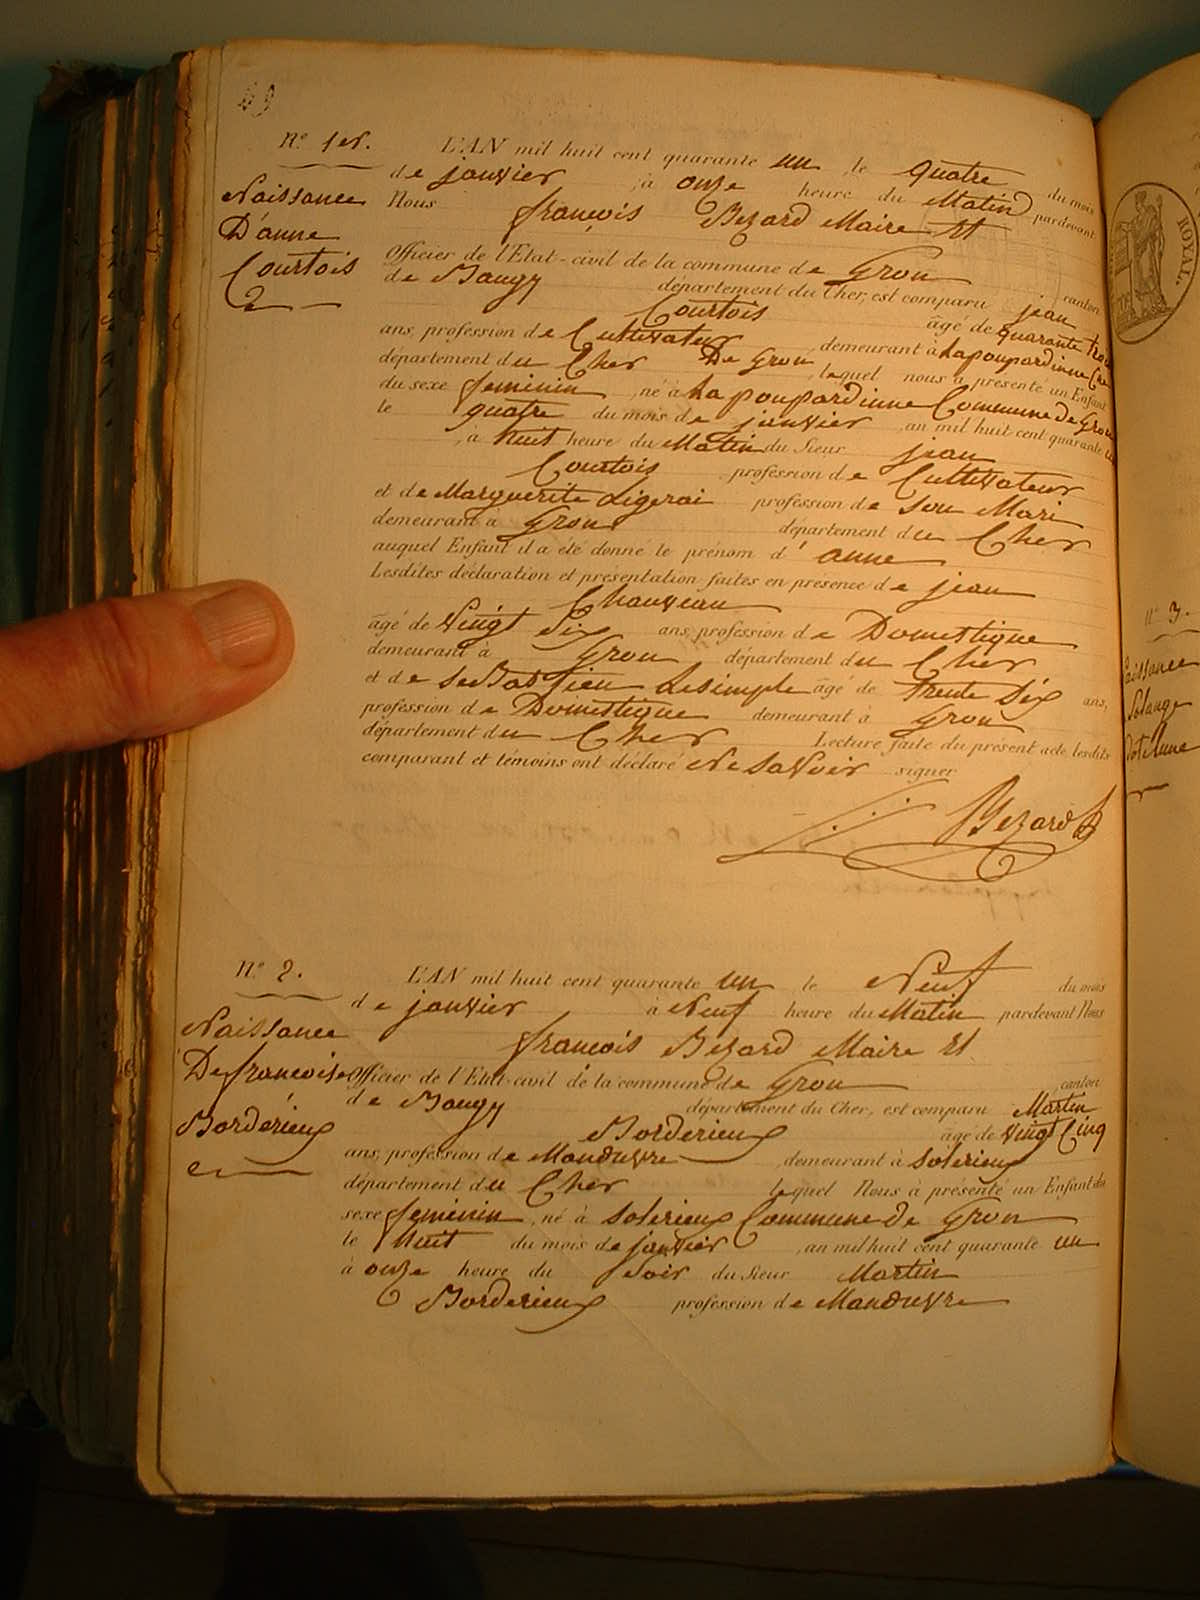 49
N.º 1er.
Naissance
D'anne
Courtois
L'AN mil huit cent quarante un, le quatre du mois
de janvier, à onze heure du Matin pardevant
Nous françois Bezard Maire Et
Officier de l'Etat-civil de la commune de Gron canton
de Baugy département du Cher, est comparu jean
Courtois âgé de quarante trois
ans, profession de Cultivateur, demeurant à La poupardinne Cne
département du Cher De Gron, lequel nous a présenté un Enfant
du sexe feminin, né à La poupardinne Commune de Gron
le quatre du mois de janvier, an mil huit cent quarante un
, à huit heure du Matin du Sieur jean
Courtois profession de Cultivateur
et de Marguerite Ligerai profession de Son Mari
demeurant à Gron département du Cher
auquel Enfant il a été donné le prénom d' anne
Lesdites déclaration et présentation faites en présence de jean
Chauveau
âgé de Vingt Six ans, profession de Domestique
demeurant à Gron département du Cher
et de SeBastien Lesimple âgé de trente Six ans,
profession de Domestique demeurant à Gron
département du Cher Lecture faite du présent acte lesdits
comparant et témoins ont déclaré Ne Savoir signer
Bezard
N.º 2.
Naissance
De francoise
Borderieux
L'AN mil huit cent quarante un le Neuf du mois
de janvier à Neuf heure du Matin pardevant Nous
francois Bezard Maire Et
Officier de l'Etat-civil de la commune de Gron canton
de Baugy département du Cher, est comparu Martin
Borderieux âgé de Vingt Cinq
ans, profession de Manœuvre, demeurant à Solerieux
département du Cher lequel Nous à présenté un Enfant du
sexe feminin, né à Solerieux Commune de Gron
le huit du mois de janvier, an mil huit cent quarante un
à onze heure du Soir du Sieur Martin
Borderieux profession de Manœuvre
ROYAL.
N.º 3.
Naissance
Solange